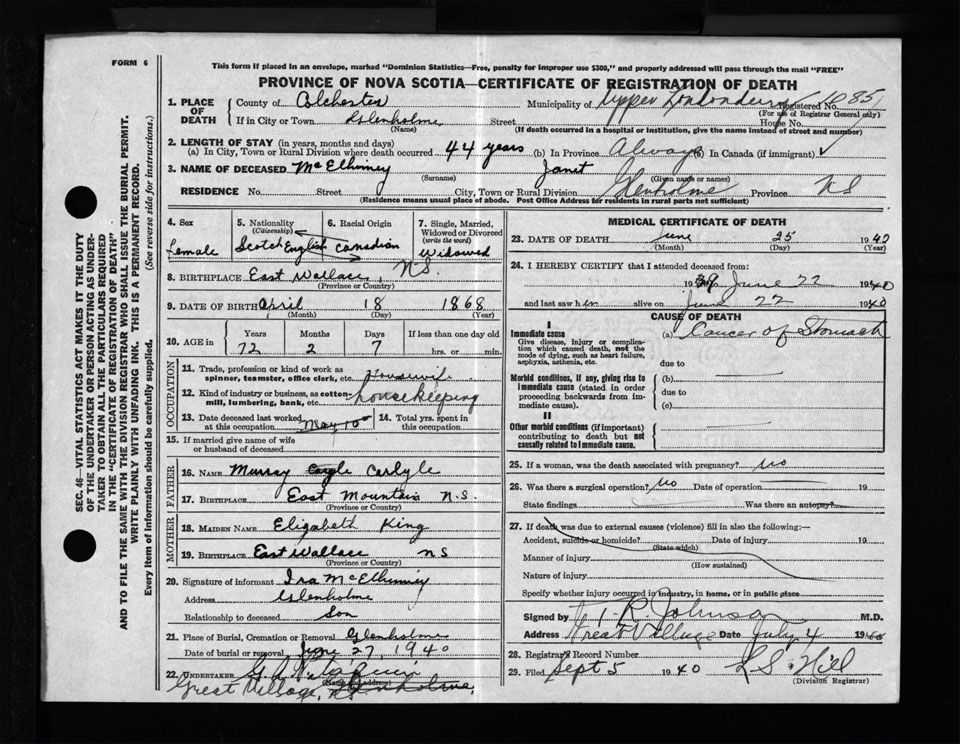 FORM 6
This form if placed in an envelope, marked "Dominion Statistics—Free, penalty for improper use $300," and properly addressed will pass through the mail "FREE"
PROVINCE OF NOVA SCOTIA—CERTIFICATE OF REGISTRATION OF DEATH
SEC. 46—VITAL STATISTICS ACT MAKES IT THE DUTY
OF THE UNDERTAKER OR PERSON ACTING AS UNDER-
TAKER TO OBTAIN ALL THE PARTICULARS REQUIRED
IN THE "CERTIFICATE OF REGISTRATION OF DEATH"
AND TO FILE THE SAME WITH THE DIVISION REGISTRAR WHO SHALL ISSUE THE BURIAL PERMIT.
WRITE PLAINLY WITH UNFADING INK. THIS IS A PERMANENT RECORD.
Every item of information should be carefully supplied. (See reverse side for instructions.)
1. PLACE OF DEATH County of Colchester Municipality of Upper Londonderry Registered No. 1085
(For use of Registrar General only)
If in City or Town Glenholme Street House No.
(Name) (If death occurred in a hospital or institution, give the name instead of street and number)
2. LENGTH OF STAY (in years, months and days)
(a) In City, Town or Rural Division where death occurred 44 years (b) In Province Always (c) In Canada (if immigrant)
3. NAME OF DECEASED McElhinney Janet
(Surname) (Given name or names)
RESIDENCE No. Street City, Town or Rural Division Glenholme Province NS
(Residence means usual place of abode. Post Office Address for residents in rural parts not sufficient)
4. Sex 5. Nationality (Citizenship) 6. Racial Origin 7. Single, Married, Widowed or Divorced (write the word)
Female Scotch English Canadian Widowed
8. BIRTHPLACE East Wallace, N.S.
(Province or Country)
9. DATE OF BIRTH April 18 1868
(Month) (Day) (Year)
10. AGE in Years Months Days If less than one day old
72 2 7 hrs. or min.
OCCUPATION
11. Trade, profession or kind of work as
spinner, teamster, office clerk, etc. Housewife
12. Kind of industry or business, as cotton-
mill, lumbering, bank, etc. housekeeping
13. Date deceased last worked
at this occupation May 10
14. Total yrs. spent in
this occupation
15. If married give name of wife
or husband of deceased
FATHER
16. NAME Murray Carlyle
17. BIRTHPLACE East Mountain N.S.
(Province or Country)
MOTHER
18. MAIDEN NAME Elizabeth King
19. BIRTHPLACE East Wallace NS
(Province or Country)
20. Signature of informant Ira McElhinney
Address Glenholme
Relationship to deceased Son
21. Place of Burial, Cremation or Removal Glenholme
Date of burial or removal June 27, 1940
22. UNDERTAKER
(Name and address)
Great Village, NS
MEDICAL CERTIFICATE OF DEATH
23. DATE OF DEATH June 25 1940
(Month) (Day) (Year)
24. I HEREBY CERTIFY that I attended deceased from:
1939 June 22 1940
and last saw her alive on June 22 1940
CAUSE OF DEATH
I
Immediate cause (a) Cancer of Stomach
Give disease, injury or complica-
tion which caused death, not the
mode of dying, such as heart failure,
asphyxia, asthenia, etc. due to
Morbid conditions, if any, giving rise to
immediate cause (stated in order
proceeding backwards from im-
mediate cause). (b)
due to
(c)
II
Other morbid conditions (if important)
contributing to death but not
causally related to immediate cause.
25. If a woman, was the death associated with pregnancy? no
26. Was there a surgical operation? No Date of operation 19
State findings Was there an autopsy?
27. If death was due to external causes (violence) fill in also the following:—
Accident, suicide or homicide? Date of injury 19
(State which)
Manner of injury
(How sustained)
Nature of injury
Specify whether injury occurred in industry, in home, or in public place
Signed by T. R. Johnson M.D.
Address Great Village Date July 4 1940
28. Registrar's Record Number
29. Filed Sept 5 1940 L S Hill
(Division Registrar)